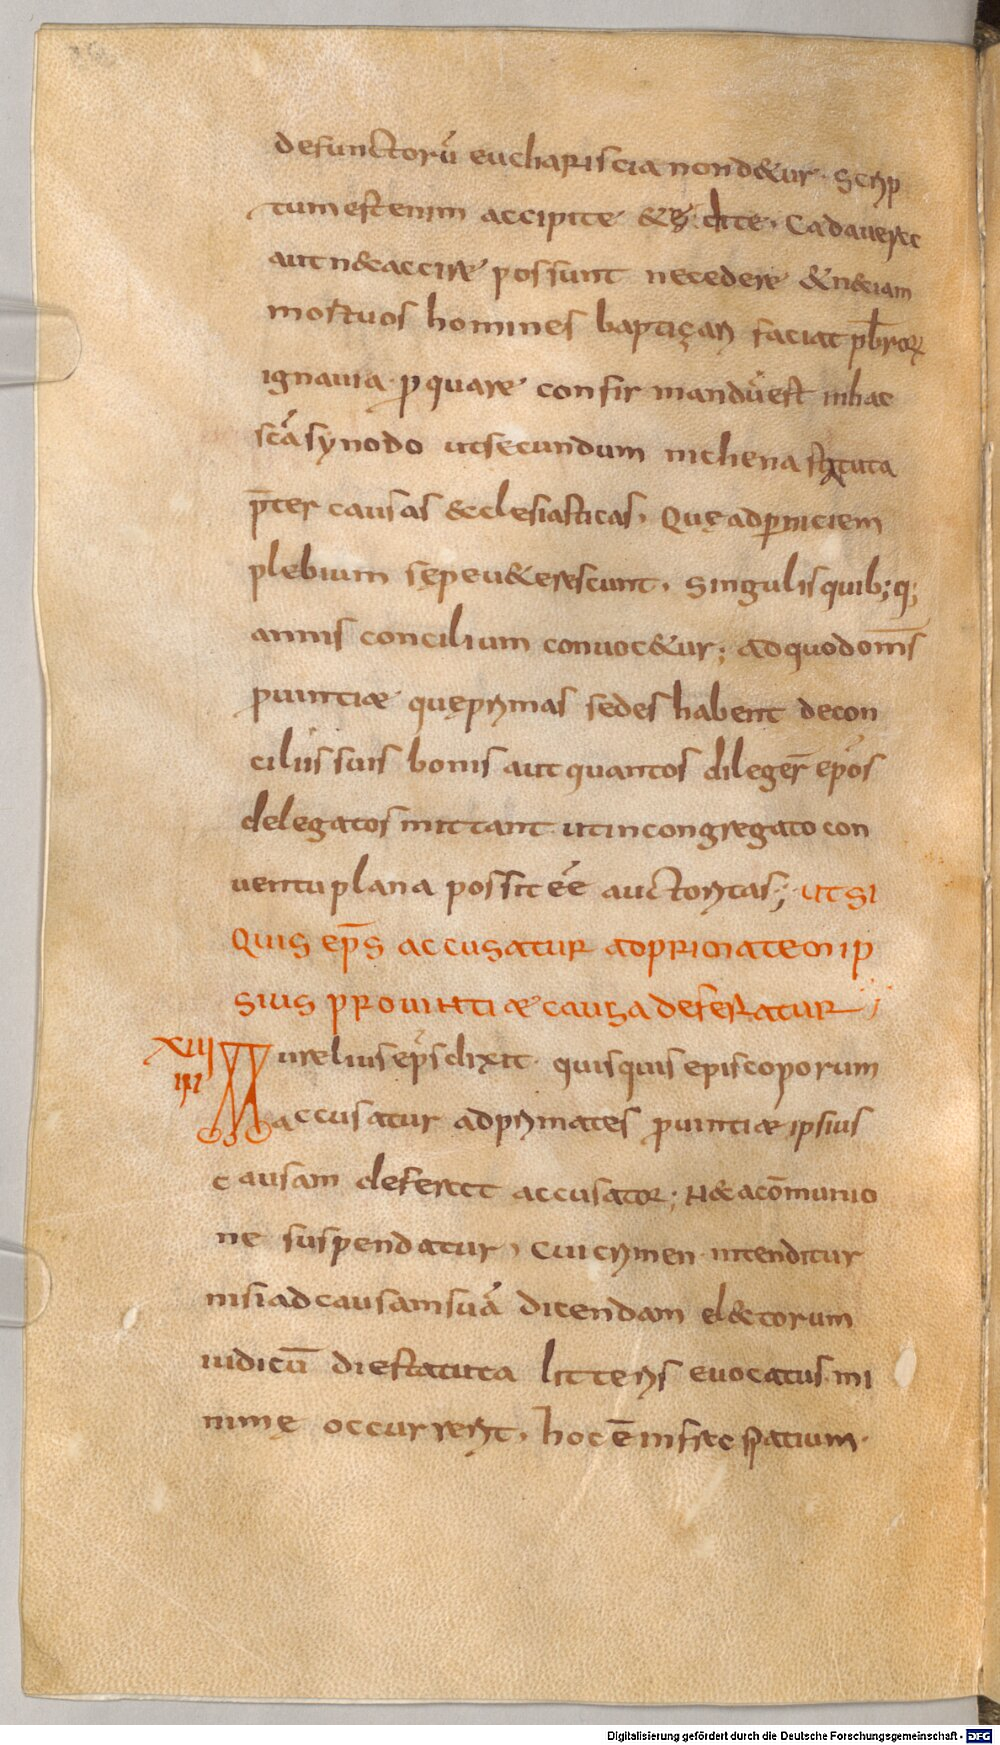 defunctorū eucharistia non d&ur. Scrip
tum est enim accipite & edite. Cadauera
aut n& accipe possunt nec edere & n& iam
mortuos homines baptizari faciat pbror̄
ignauia p̄ quare confirmandū est in hac
scā synodo ut secundum nichena statuta
p̄ter causas &clesiasticas. Quę ad perniciem
plebium sępe u&erescunt. Singulis quib;q;
annis concilium conuoc&ur; ad quod om̄s
puintiæ quę primas sedes habent de con
ciliis suis bonis aut quantos dileger̄ ep̄os
delegatos mittant ut in congregato con
uentu plana possit eē auctoritas; ut si
quis ep̄s accusatur ad primatem ip
sius prouintiæ causa deferatur
XIII Aurelius ep̄s dixit. quisquis episcoporum
III accusatur ad primates puintiæ ipsius
causam deferat accusator; n& a cōmunio
ne suspendatur, cui crimen intenditur
nisi ad causam suā dicendam el&corum
iudicū die statuta litteris euocatus mi
nimę occurrerit. hoc ē infra spatium.
Digitalisierung gefördert durch die Deutsche Forschungsgemeinschaft - DFG